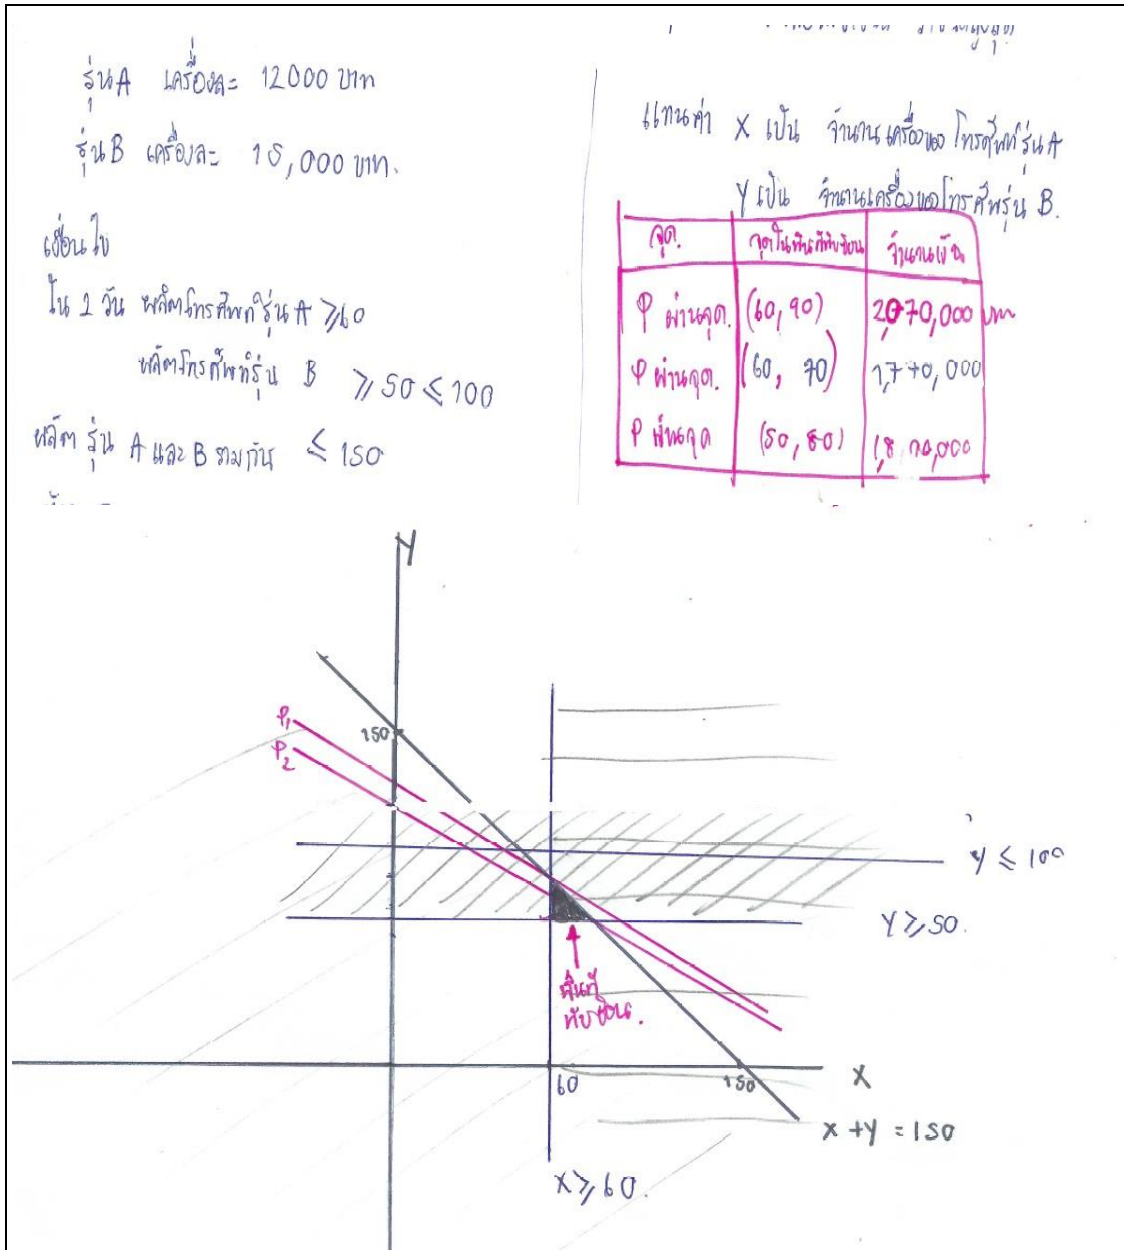 รุ่น A เครื่องละ 12000 บาท
รุ่น B เครื่องละ 15,000 บาท.
เงื่อนไข
ใน 1 วัน ผลิตโทรศัพท์รุ่น A ≥ 60
ผลิตโทรศัพท์รุ่น B ≥ 50 ≤ 100
ผลิต รุ่น A และ B รวมกัน ≤ 150
แทนค่า X เป็น จำนวนเครื่องของ โทรศัพท์รุ่น A
Y เป็น จำนวนเครื่องของโทรศัพท์รุ่น B.
จุด. จุดในพื้นที่ทับซ้อน จำนวนเงิน
P ผ่านจุด. (60, 90) 2,070,000 บาท
P ผ่านจุด. (60, 70) 1,770,000
P ผ่านจุด (50, 80)
Y
P1
P2
150
Y ≤ 100
Y ≥ 50.
พื้นที่
ทับซ้อน.
60
150
X
X + Y = 150
X ≥ 60.